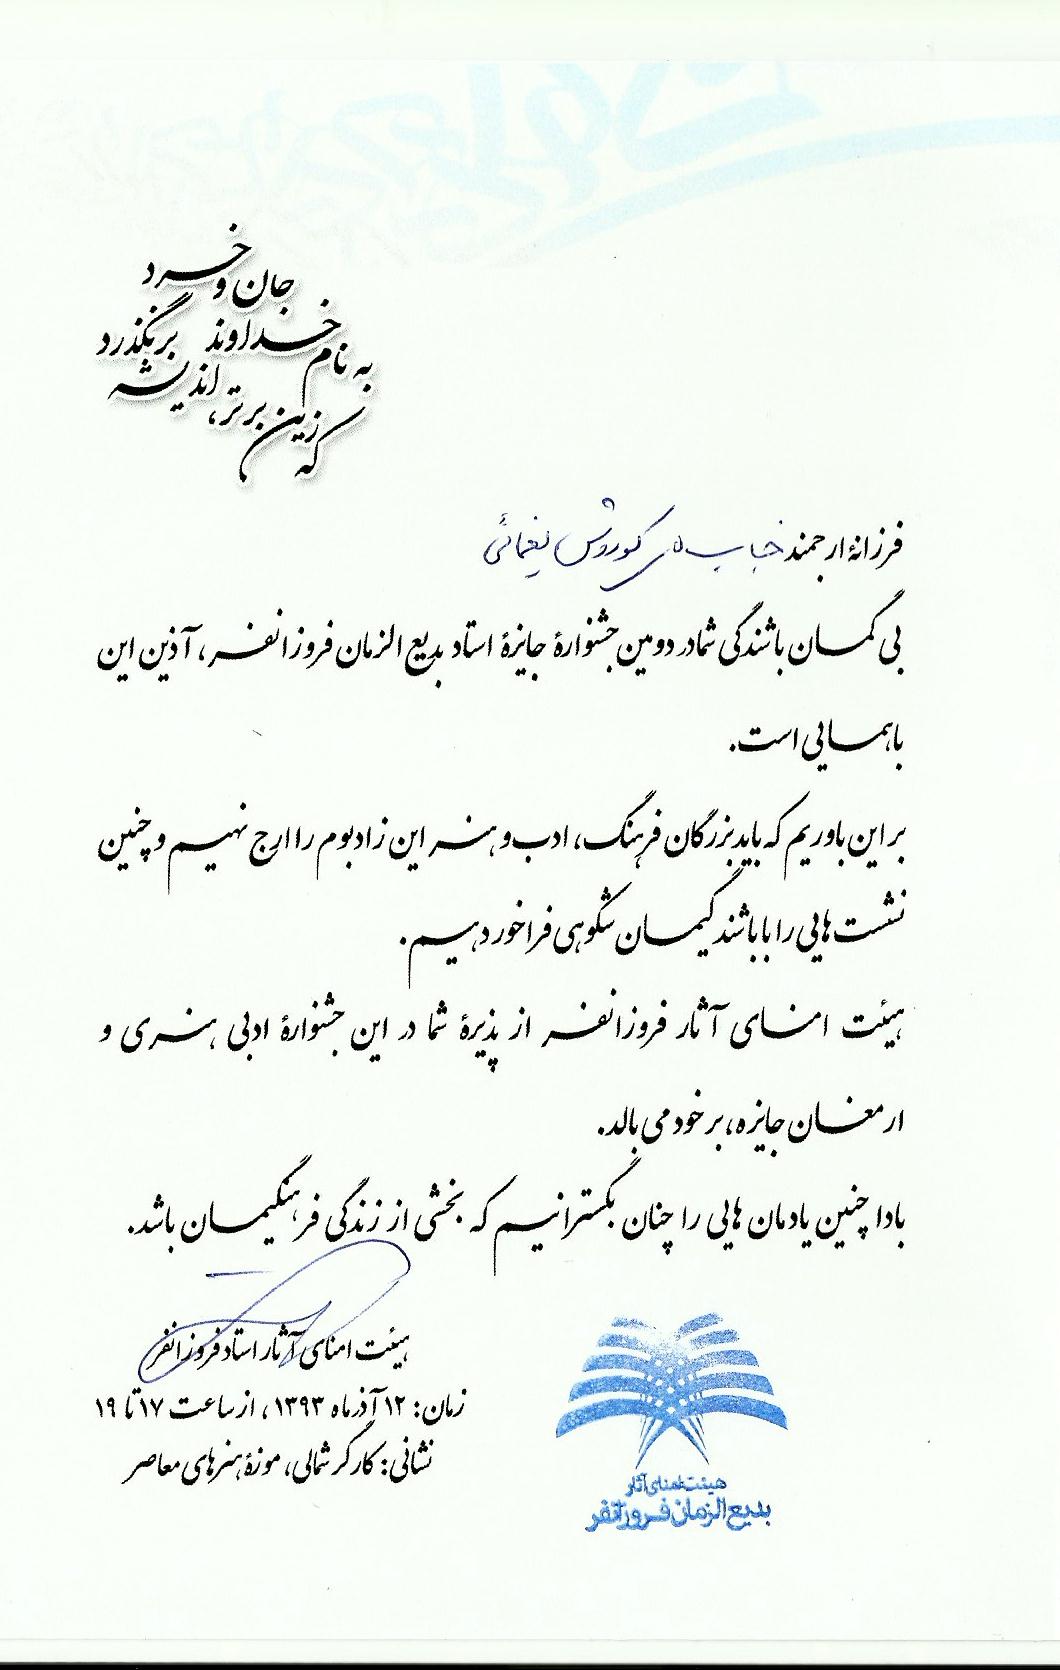 به نام خداوند جان و خرد
کزین برتر، اندیشه برنگذرد
فرزانهٔ ارجمند جناب آقای کوروش نعمائی
بی گمان باشندگی شما در دومین جشنوارهٔ جایزهٔ استاد بدیع الزمان فروزانفر، آذین این
باهمایی است.
بر این باوریم که باید بزرگان فرهنگ، ادب و هنر این زادبوم را ارج نهیم و چنین
نشست هایی را با باشندگیمان شکوهی فراخور دهیم.
هیئت امنای آثار فروزانفر از پذیرهٔ شما در این جشنوارهٔ ادبی هنری و
ارمغان جایزه، بر خود می بالد.
بادا چنین یادمان هایی را چنان بگسترانیم که بخشی از زندگی فرهنگیمان باشد.
هیئت امنای آثار استاد فروزانفر
زمان: ۱۲ آذرماه ۱۳۹۳، از ساعت ۱۷ تا ۱۹
نشانی: کارگر شمالی، موزهٔ هنرهای معاصر
هیئت امنای آثار
بدیع الزمان فروزانفر